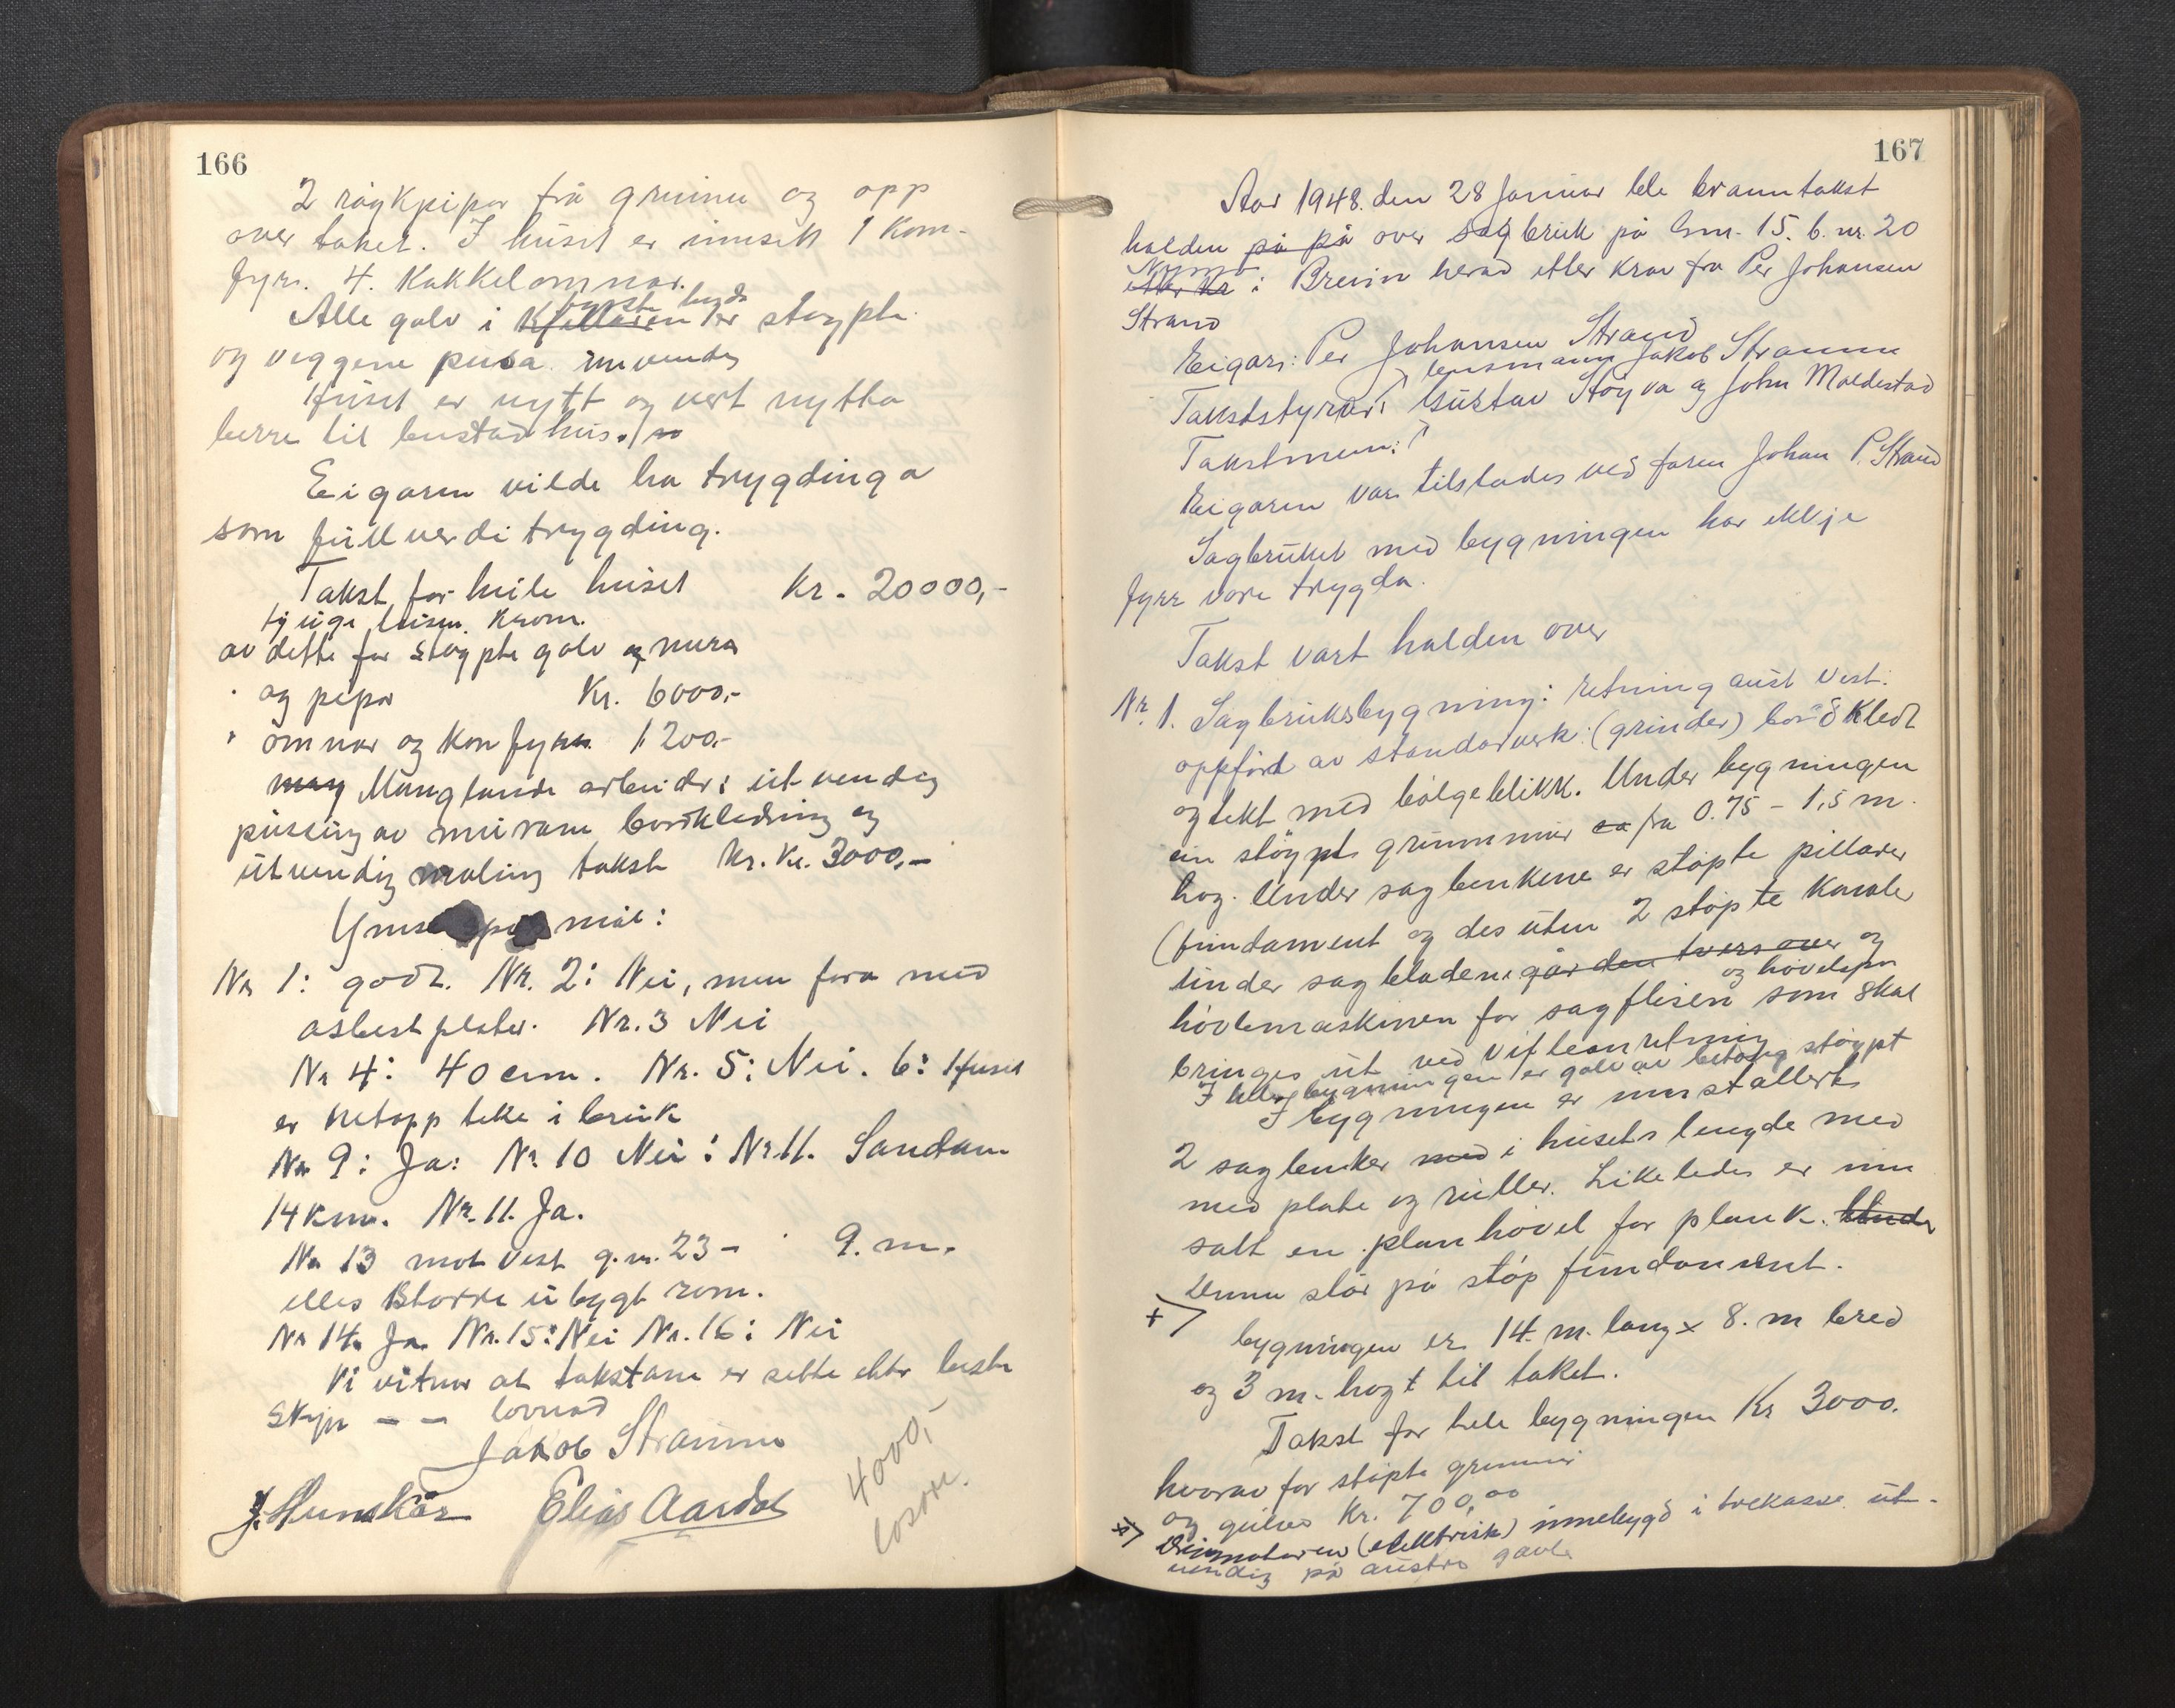 166
2 røykpipor frå gruinn og opp
over taket. I huset er innsett 1 kom-
fyr. 4. kakkelomnar.
Alle golv i kjellaren er støypte
og veggene pussa innvendes
Huset er nytt og vert nytta
berre til bustadhus.
Eigaren vilde ha trygdinga
som fullverditrygding.
Takst for heile huset Kr. 20000,-
tjuge tusen kroner.
av dette for støypte golv og murar
og pipor Kr. 6000,-
" omnar og konfyrer 1200,-
may Manglande arbeider: utvendig
pussing av murane bordkledning og
utvendig maling takst Kr. Kr. 3000,-
Ymse spursmål:
Nr 1: godt. Nr. 2: Nei, men fora med
asbestplater. Nr. 3 Nei
Nr 4: 40 cm. Nr. 5: Nei. 6: Huset
er netopp teke i bruk
Nr 9: Ja: Nr 10 Nei: Nr 11. Sandane
14 km. Nr. 11. Ja.
Nr 13 mot vest g.nr. 23 - 9. m.
elles større ubygt rom.
Nr 14. Ja Nr. 15: Nei Nr. 16: Nei
Vi vitnar at takstane er sette etter beste
skjøn - - lovnad
Jakob Straume
J. Hunskår Elias Aardal
4000,-
losøre.
167
Aar 1948. den 28 Januar ble branntakst
halden på på over sagbruk på Gnr. 15. b. nr. 20
Nymo
etter kr i Breim herad etter krav fra Per Johansen
Strand
Eigar: Per Johansen Strand
lensmann Jakob Straume
Takststyrar: Gustav Støyva og John Moldestad
Takstmenn:
Eigaren var tilstades ved faren Johan P. Strand
Sagbruket med bygningen har ekkje
fyrr vore trygda.
Takst vart halden over
Nr. 1. Sagbruksbygning: retning aust vest.
oppförd av standarverk: (grinder) bordkledt
og tekt med bölgeblikk. Under bygningen
ein stöypt grunnmur ca fra 0.75 - 1,5 m.
høg. Under sagbenkene er stöpte pillarer
(fundament og des uten 2 stöpte kanaler
under sagbladene går den tvers over og
hövlemaskinen for sagflisen og hövelspon som skal
bringes ut ved vifteanretning
I hele bygningen er golv av betong støypt
I bygningen er innstallert
2 sagbenker med i husets lengde med
med plate og ruller. Likeledes er inn
satt en planhövel for plank. Under
Denne står på stöp fundament.
+> bygningen er 14. m. lang x 8. m bred
og 3 m. høgt til taket.
Takst for hele bygningen Kr 3000.
hvorav for stöpte grunnmur
og gulver Kr. 700,00
+> Drivmotoren (elektrisk) innebygd i trekasse ut-
vendig på austre gavle